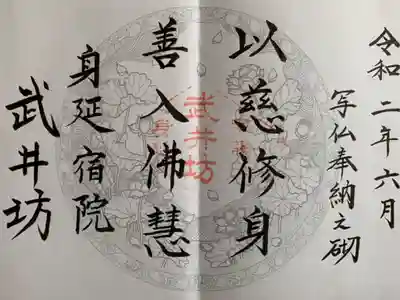 令和二年六月
写仏奉納之砌
以慈修身
善入佛慧
身延宿院
武井坊
武井坊